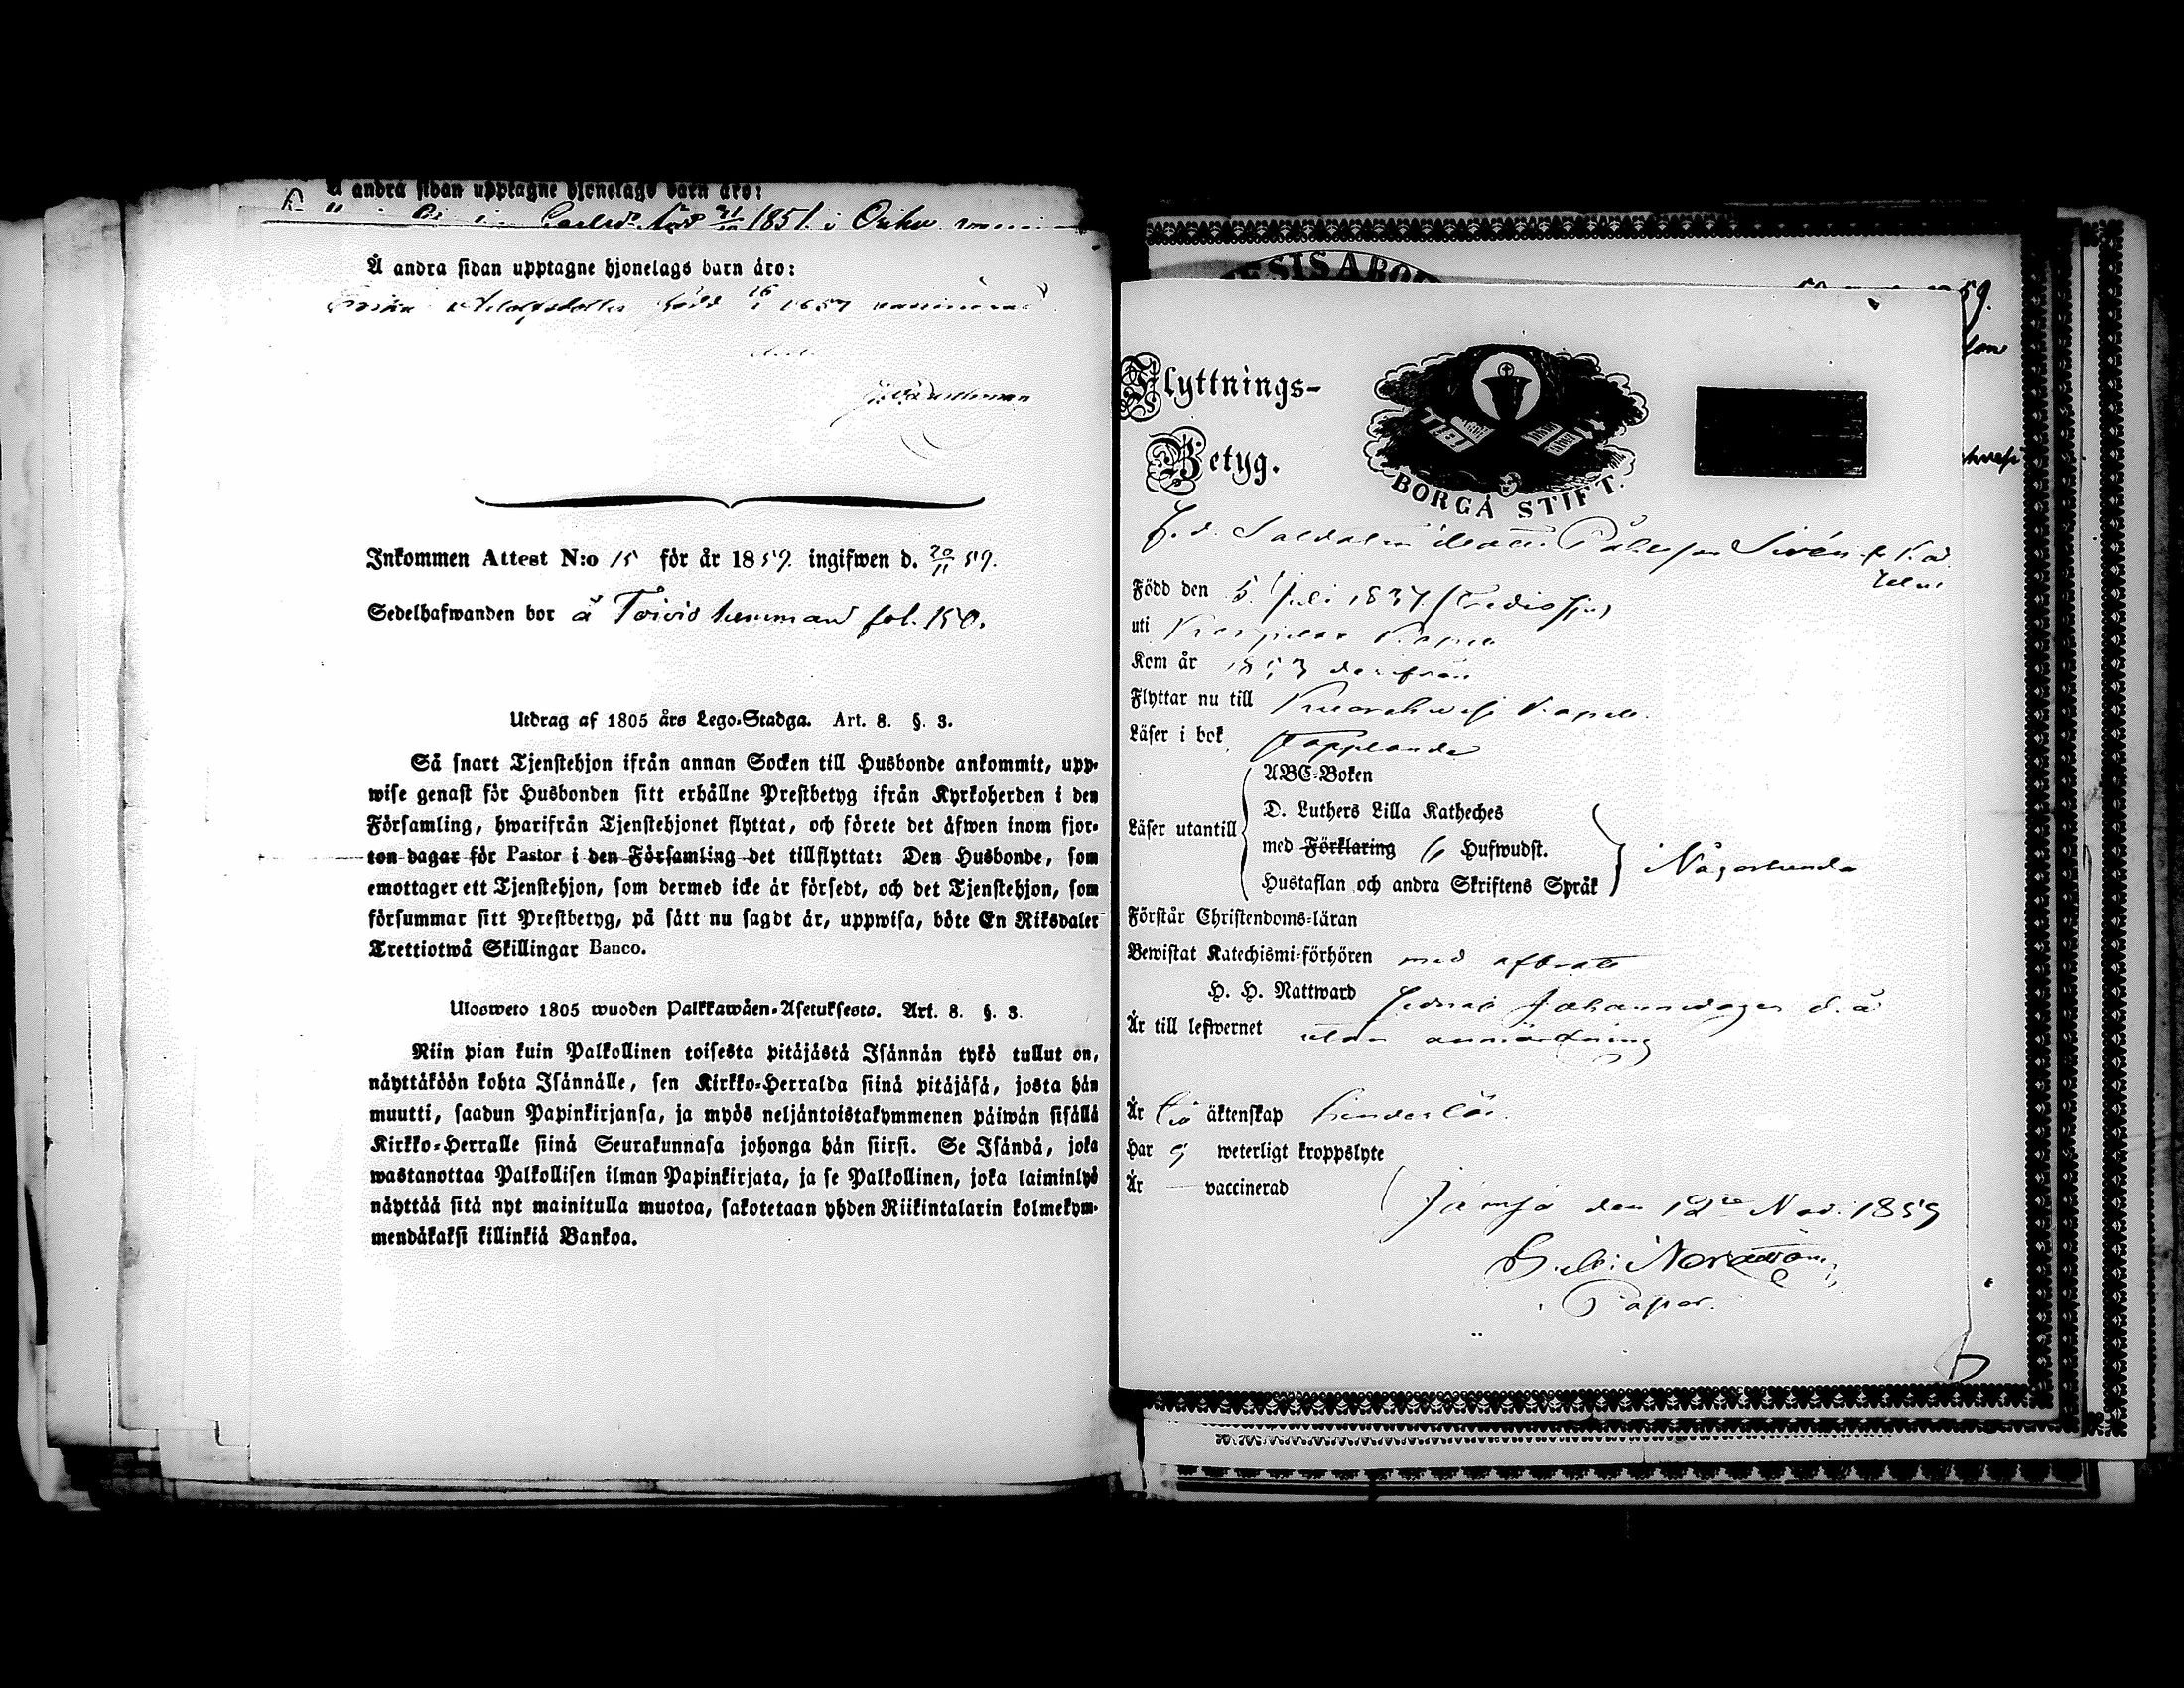 Å andra sidan upptagne hjonelags barn äro:
1851. i
Å andra sidan upptagne hjonelags barn äro:
född 16
Inkommen Attest N:o 15 för år 1859. ingifwen d. 20/11 59.
Sedelhafwanden bor å Toivio hemman fol. 150.
Utdrag af 1805 års Lego-Stadga. Art. 8. §. 3.
Så snart Tjenstehjon ifrån annan Socken till Husbonde ankommit, upp-
wise genast för Husbonden sitt erhållne Prestbetyg ifrån Kyrkoherden i den
Församling, hwarifrån Tjenstehjonet flyttat, och förete det äfwen inom fjor-
ton dagar för Pastor i den Församling det tillflyttat: Den Husbonde, som
emottager ett Tjenstehjon, som dermed icke är försedt, och det Tjenstehjon, som
försummar sitt Prestbetyg, på sätt nu sagdt är, uppwisa, böte En Riksdaler
Trettiotwå Skillingar Banco.
Ulosweto 1805 wuoden Palkkawäen-Asetuksesta. Art. 8. §. 3.
Niin pian kuin Palkollinen toisesta pitäjästä Isännän tykö tullut on,
näyttäköön kohta Isännälle, sen Kirkko-Herralda siinä pitäjäsä, josta hän
muutti, saadun Papinkirjansa, ja myös neljäntoistakymmenen päiwän sisällä
Kirkko-Herralle siinä Seurakunnasa johonga hän siirsi. Se Isändä, joka
wastanottaa Palkollisen ilman Papinkirjata, ja se Palkollinen, joka laiminlyö
näyttää sitä nyt mainitulla muotoa, sakotetaan yhden Riikintalarin kolmekym-
mendäkaksi killinkiä Bankoa.
59.
Flyttnings-
Betyg.
BORGÅ STIFT.
F. d. Soldaten Matts Påhlsson Sirén
Född den 5 Juli 1837
uti Korpilax Kapell
Kom år 1853 derifrån
Flyttar nu till Kuorehvesi Kapell.
Läser i bok stapplande
Läser utantill
ABC-Boken
D. Luthers Lilla Katheches
med Förklaring Hufwudst.
Hustaflan och andra Skriftens Språk
Någorlunda
Förstår Christendoms-läran
Bewistat Katechismi-förhören med afbrott
H. H. Nattward sednast Johannedagen d. å
Är till lefwernet utan anmärkning
Är till äktenskap hinderlös.
Har ej weterligt kroppslyte
Är vaccinerad
Jämsä den 12te Nov. 1859